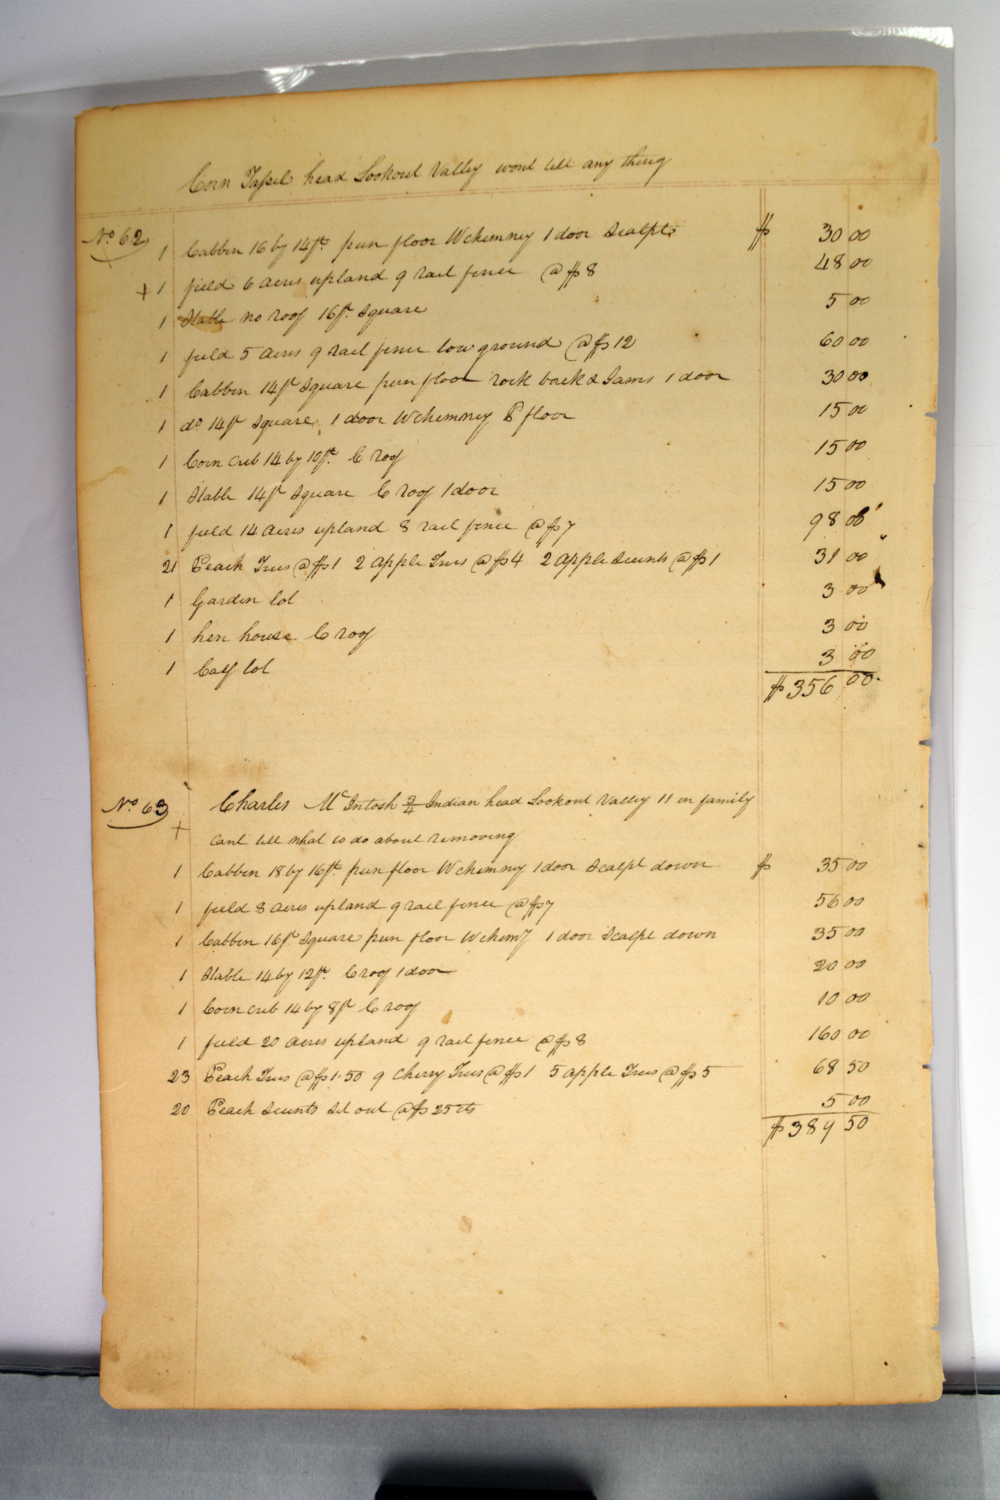 Corn Tassel head Lookout Valley wont tell any thing
No. 62
1 Cabbin 16 by 14ft. pun floor W chimney 1 door Scalpt $ 30 00
+ 1 field 6 acres upland 9 rail fence @ $ 8 48 00
1 Stable no roof 16ft. Square 5 00
1 field 5 acres 9 rail fence low ground @ $ 12 60 00
1 Cabbin 14ft Square pun floor rock back & Jams 1 door 30 00
1 do 14ft Square 1 door W chimney P floor 15 00
1 Corn crib 14 by 10ft. C roof 15 00
1 Stable 14ft Square C roof 1 door 15 00
1 field 14 acres upland 8 rail fence @ $ 7 98 00
21 Peach Trees @ $ 1 2 apple Trees @ $ 4 2 apple Scunts @ $ 1 31 00
1 Garden lot 3 00
1 hen house C roof 3 00
1 Calf lot 3 00
$ 356 00
No. 63 Charles McIntosh Indian head Lookout Valley 11 in family
+ cant tell what to do about removing
1 Cabbin 18 by 16ft pun floor W chimney 1 door Scalpt down $ 35 00
1 field 8 acres upland 9 rail fence @ $ 7 56 00
1 Cabbin 16ft Square pun floor W chimy 1 door Scalpt down 35 00
1 Stable 14 by 12ft. C roof 1 door 20 00
1 Corn crib 14 by 8ft C roof 10 00
1 field 20 acres upland 9 rail fence @ $ 8 160 00
23 Peach Trees @ $ 1.50 9 Cherry Trees @ $ 1 5 apple Trees @ $ 5 68 50
20 Peach Scunts Set out @ $ 25 cts 5 00
$ 389 50